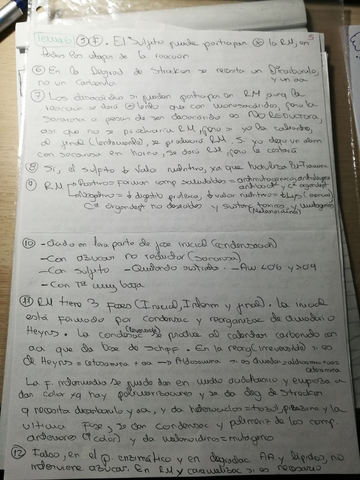 Tema 10 ③ F. El sulfito puede participar en la RM, en
todas las etapas de la reacción
⑥ En la Degrad de Strecker se necesita un Dicarbonilo,
no un carbonilo y un aa
⑦ Los disacáridos si pueden participar en RM aunq la
reacción se dará + lenta que con monosacáridos, pero la
sacarosa a pesar de ser disacárido es NO REDUCTORA,
así que no se producirá RM, pero si yo la caliento,
al final (lentamente), se producirá RM. Si yo dejo un alim
con sacarosa en horno, se dará RM, pero le costará
⑧ Si, el sulfito ↓ valor nutritivo, ya que hidroliza la Tiamina
⑨ RM Positivo = Forman comp saludables = antimutagénicos, antialergia
antioxidt y Cº organolept
Negativo = ↓ digestib proteína, ↓ valor nutritivo = ↓ Lys (esencial)
Cº organolept no deseados y sustanc tóxicos y mutágenos
(Melanoidinas)
⑩ - Ciado en 1era parte de fase inicial (condensación)
- Con azúcar no reductor (Sacarosa)
- Con sulfito - Quitando sustratos - Aw <0'6 y >0'9
- Con Tª muy baja
⑪ RM tiene 3 Fases (Inicial, Interm y final). La inicial
está formada por condensac y reorganizac de Amadori o
Heyns. La condensac se produce al calentar carbonilo con
aa que da base de schiff. En la reorg (irreversible) = es
de Heyns = cetosamina + aa → Aldosamina → es Amadori = aldosamina + aa
cetosamina
La F. intermedia se puede dar en medio ácido/básico y empieza a
dar color xq hay polimerizaciones y se da deg de Strecker
q necesita dicarbonilo y aa, y da heterociclos = tiazol, pirazina y la
ultima Fase, se dan condensac y polimeriz de los comp
anteriores (↑color) y da melanoidinas = mutágenos
⑫ Falso, en el p. enzimático y en degradac AA y lípidos, no
interviene azúcar. En RM y caramelizac si es necesario